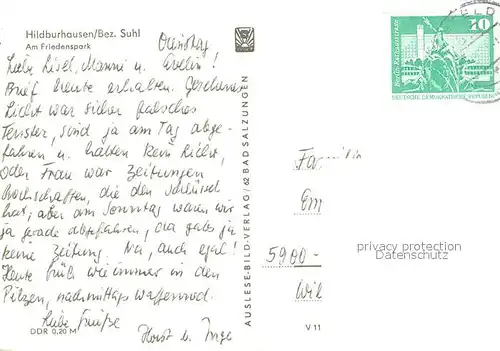 Hildburhausen/Bez. Suhl
Am Friedenspark
Dienstag
Liebe Lisel, Manni u. Evelin!
Brief heute erhalten. Gesehenes
Licht war sicher falsches
Fenster, sind ja am Tag abge-
fahren u. hatten kein Licht,
oder Frau war Zeitungen
hochschaffen, die den Schlüssel
hat, aber am Sonntag waren wir
ja gerade abgefahren, da gabs ja
keine Zeitung. Na, auch egal!
Heute früh wie immer in den
Pilzen, nachmittags Waffenrod.
Liebe Grüße
Horst u. Inge
DDR 0,20 M
AUSLESE-BILD-VERLAG/62 BAD SALZUNGEN
V 11
Berlin, Rathausstraße
10
DEUTSCHE DEMOKRATISCHE REPUBLIK
ELD
Familie
Em
5900-
Wil
privacy protection
Datenschutz